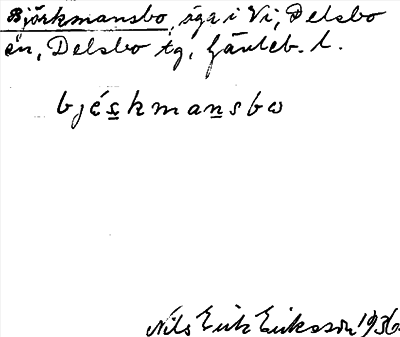 Björkmansbo, äga i Vi, Delsbo
sn, Delsbo tg, Gävleb. l.
bjéṣkmaṉsbω
Nils Erik Eriksson 1936